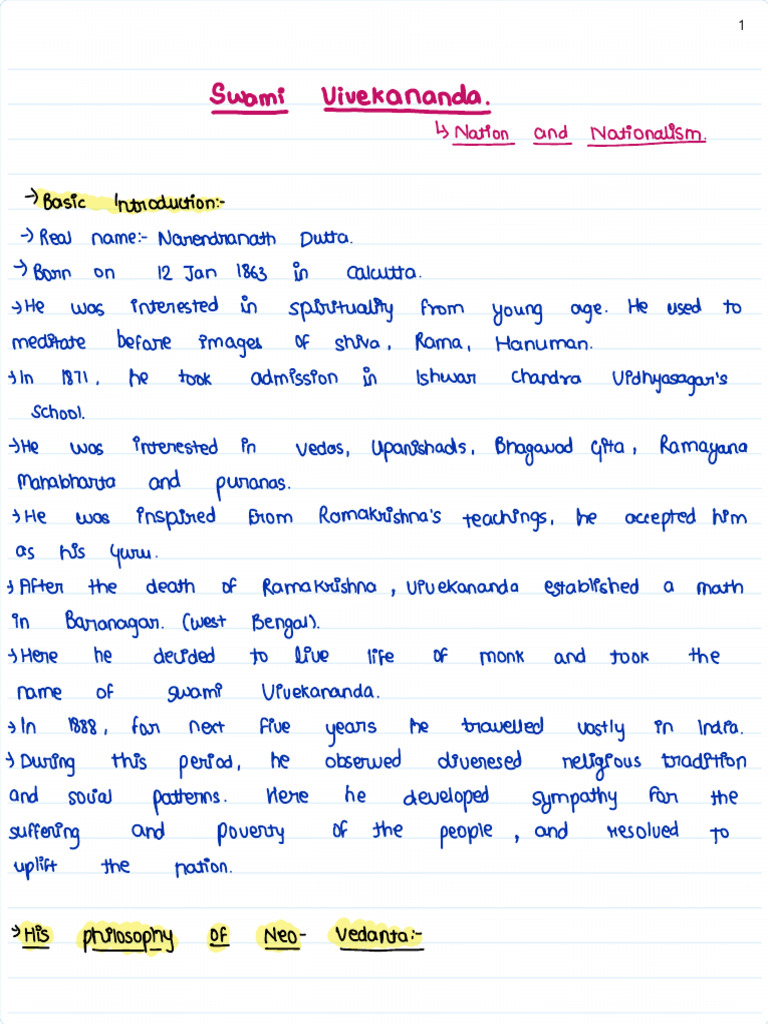 1
Swami Vivekananda.
↳ Nation and Nationalism.
→ Basic Introduction:-
→ Real name:- Narendranath Dutta.
→ Born on 12 Jan 1863 in Calcutta.
→ He was interested in spirituality from young age. He used to
meditate before images of Shiva, Rama, Hanuman.
→ In 1871, he took admission in Ishwar Chandra Vidhyasagar's
School.
→ He was interested in Vedas, Upanishads, Bhagavad Gita, Ramayana
Mahabharta and puranas.
→ He was inspired from Ramakrishna's teachings, he accepted him
as his Guru.
→ After the death of Ramakrishna, Vivekananda established a math
in Baranagar. (West Bengal).
→ Here he decided to live life of monk and took the
name of swami Vivekananda.
→ In 1888, for next five years he travelled vastly in India.
→ During this period, he observed diveresed religious tradition
and social patterns. Here he developed sympathy for the
suffering and poverty of the people, and resolved to
uplift the nation.
→ His philosophy of Neo- Vedanta:-